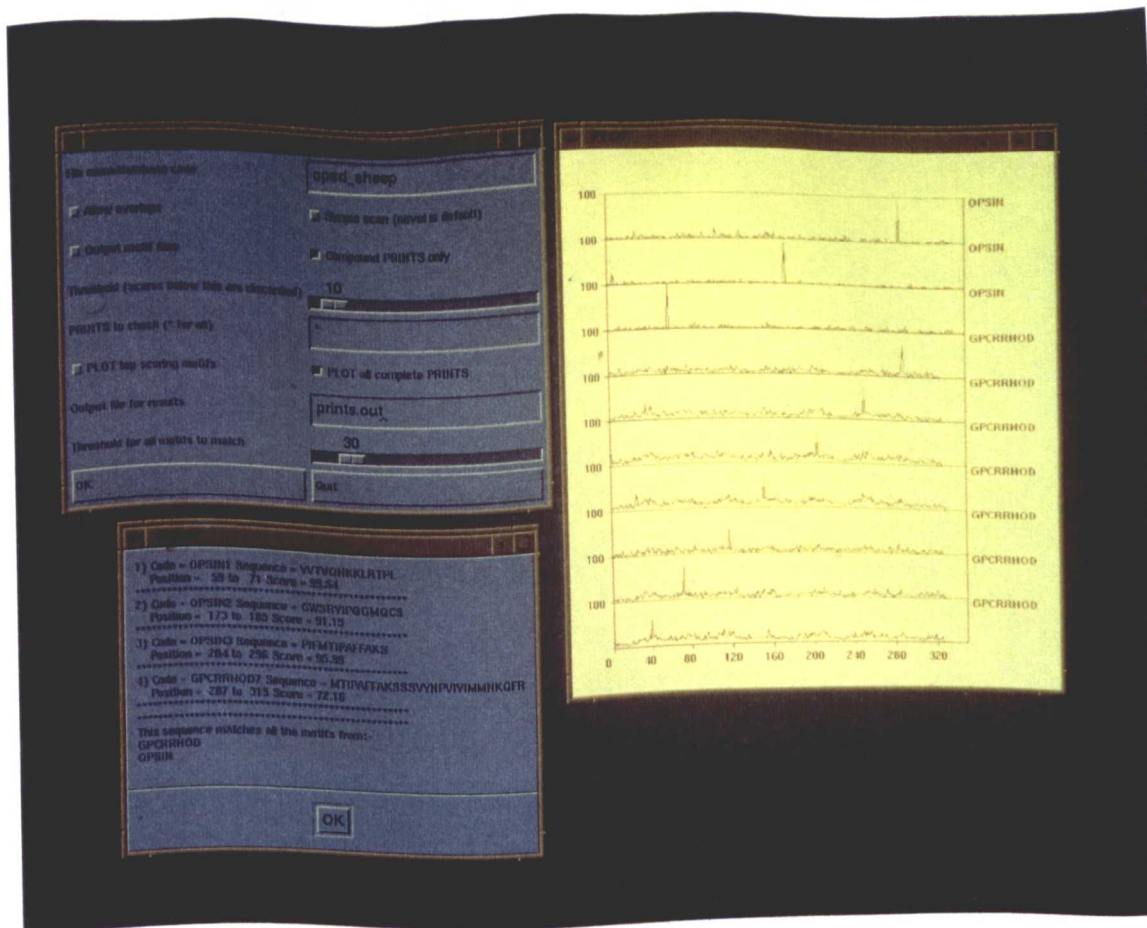 File name/database code
opsd_sheep
Allow overlaps
Simple scan (novel is default)
Output motif files
Compound PRINTS only
Threshold (scores below this are discarded)
10
PRINTS to check (* for all)
*
PLOT top scoring motifs
PLOT all complete PRINTS
Output file for results
prints.out
Threshold for all motifs to match
30
OK
Quit
1) Code = OPSIN1 Sequence = YVTVQHKKLRTPL
Position = 59 to 71 Score = 99.64
2) Code = OPSIN2 Sequence = GWSRYIPQGMQCS
Position = 173 to 185 Score = 91.15
3) Code = OPSIN3 Sequence = PIFMTIPAFFAKS
Position = 284 to 296 Score = 95.99
4) Code = GPCRRHOD7 Sequence = MTIPAFFAKSSSVYNPVIYIMMNKQFR
Position = 287 to 313 Score = 72.16
This sequence matches all the motifs from:-
GPCRRHOD
OPSIN
OK
100
OPSIN
100
OPSIN
100
OPSIN
100
GPCRRHOD
100
GPCRRHOD
100
GPCRRHOD
100
GPCRRHOD
100
GPCRRHOD
100
GPCRRHOD
100
GPCRRHOD
0 40 80 120 160 200 240 280 320